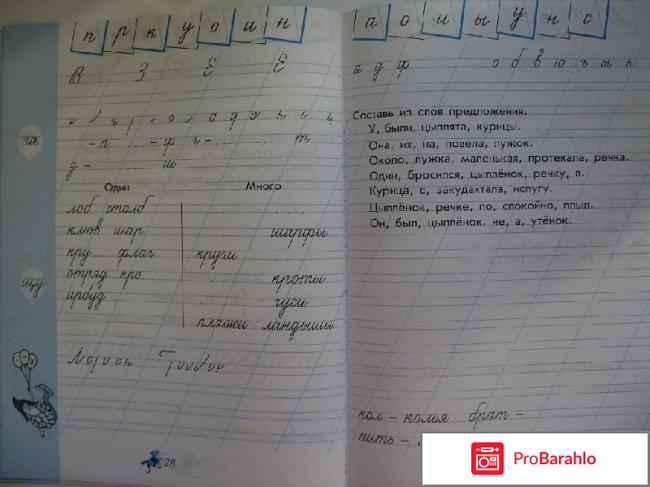 п р к у о и н
В З Е Е
– п ... – ф г – ... т
з – ... ш
Один Много
лоб столб
клюв шар... ... шарфы
кру... флаг круги
отряд кро... кроты
арбуз гуси
пляжи ландыши
28
а о и ы у н с
а д ф о б в ю ъ ы ь
Составь из слов предложения.
У, были, цыплята, курицы.
Она, их, на, повела, лужок.
Около, лужка, маленькая, протекала, речка.
Один, бросился, цыплёнок, речку, в.
Курица, с, закудахтала, испугу.
Цыплёнок, речке, по, спокойно, плыл.
Он, был, цыплёнок, не, а, утёнок.
кол – колья брат –
пить –
ProBarahlo